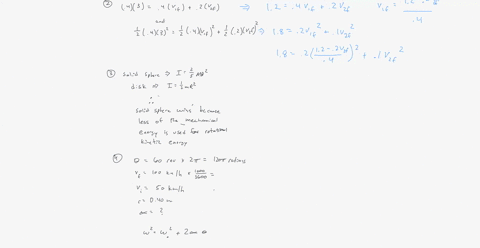 ② (.4)(3) = .4(v₁f) + .2(v₂f) ⇒ 1.2 = .4v₁f + .2v₂f ⇒ v₁f = 1.2 - .2v₂f / .4
and
½(.4)(3)² = ½(.4)(v₁f)² + ½(.2)(v₂f)² ⇒ 1.8 = .2v₁f² + .1v₂f²
1.8 = .2(1.2 - .2v₂f / .4)² + .1v₂f²
③ solid sphere ⇒ I = ⅖ MR²
disk ⇒ I = ½ MR²
∴
solid sphere wins because
less of the mechanical
energy is used for rotational
kinetic energy
④ θ = 60 rev × 2π = 120π radians
v = 100 km/h × 1000/3600 =
v = 50 km/h
r = 0.40 m
α = ?
ω² = ω₀² + 2αθ